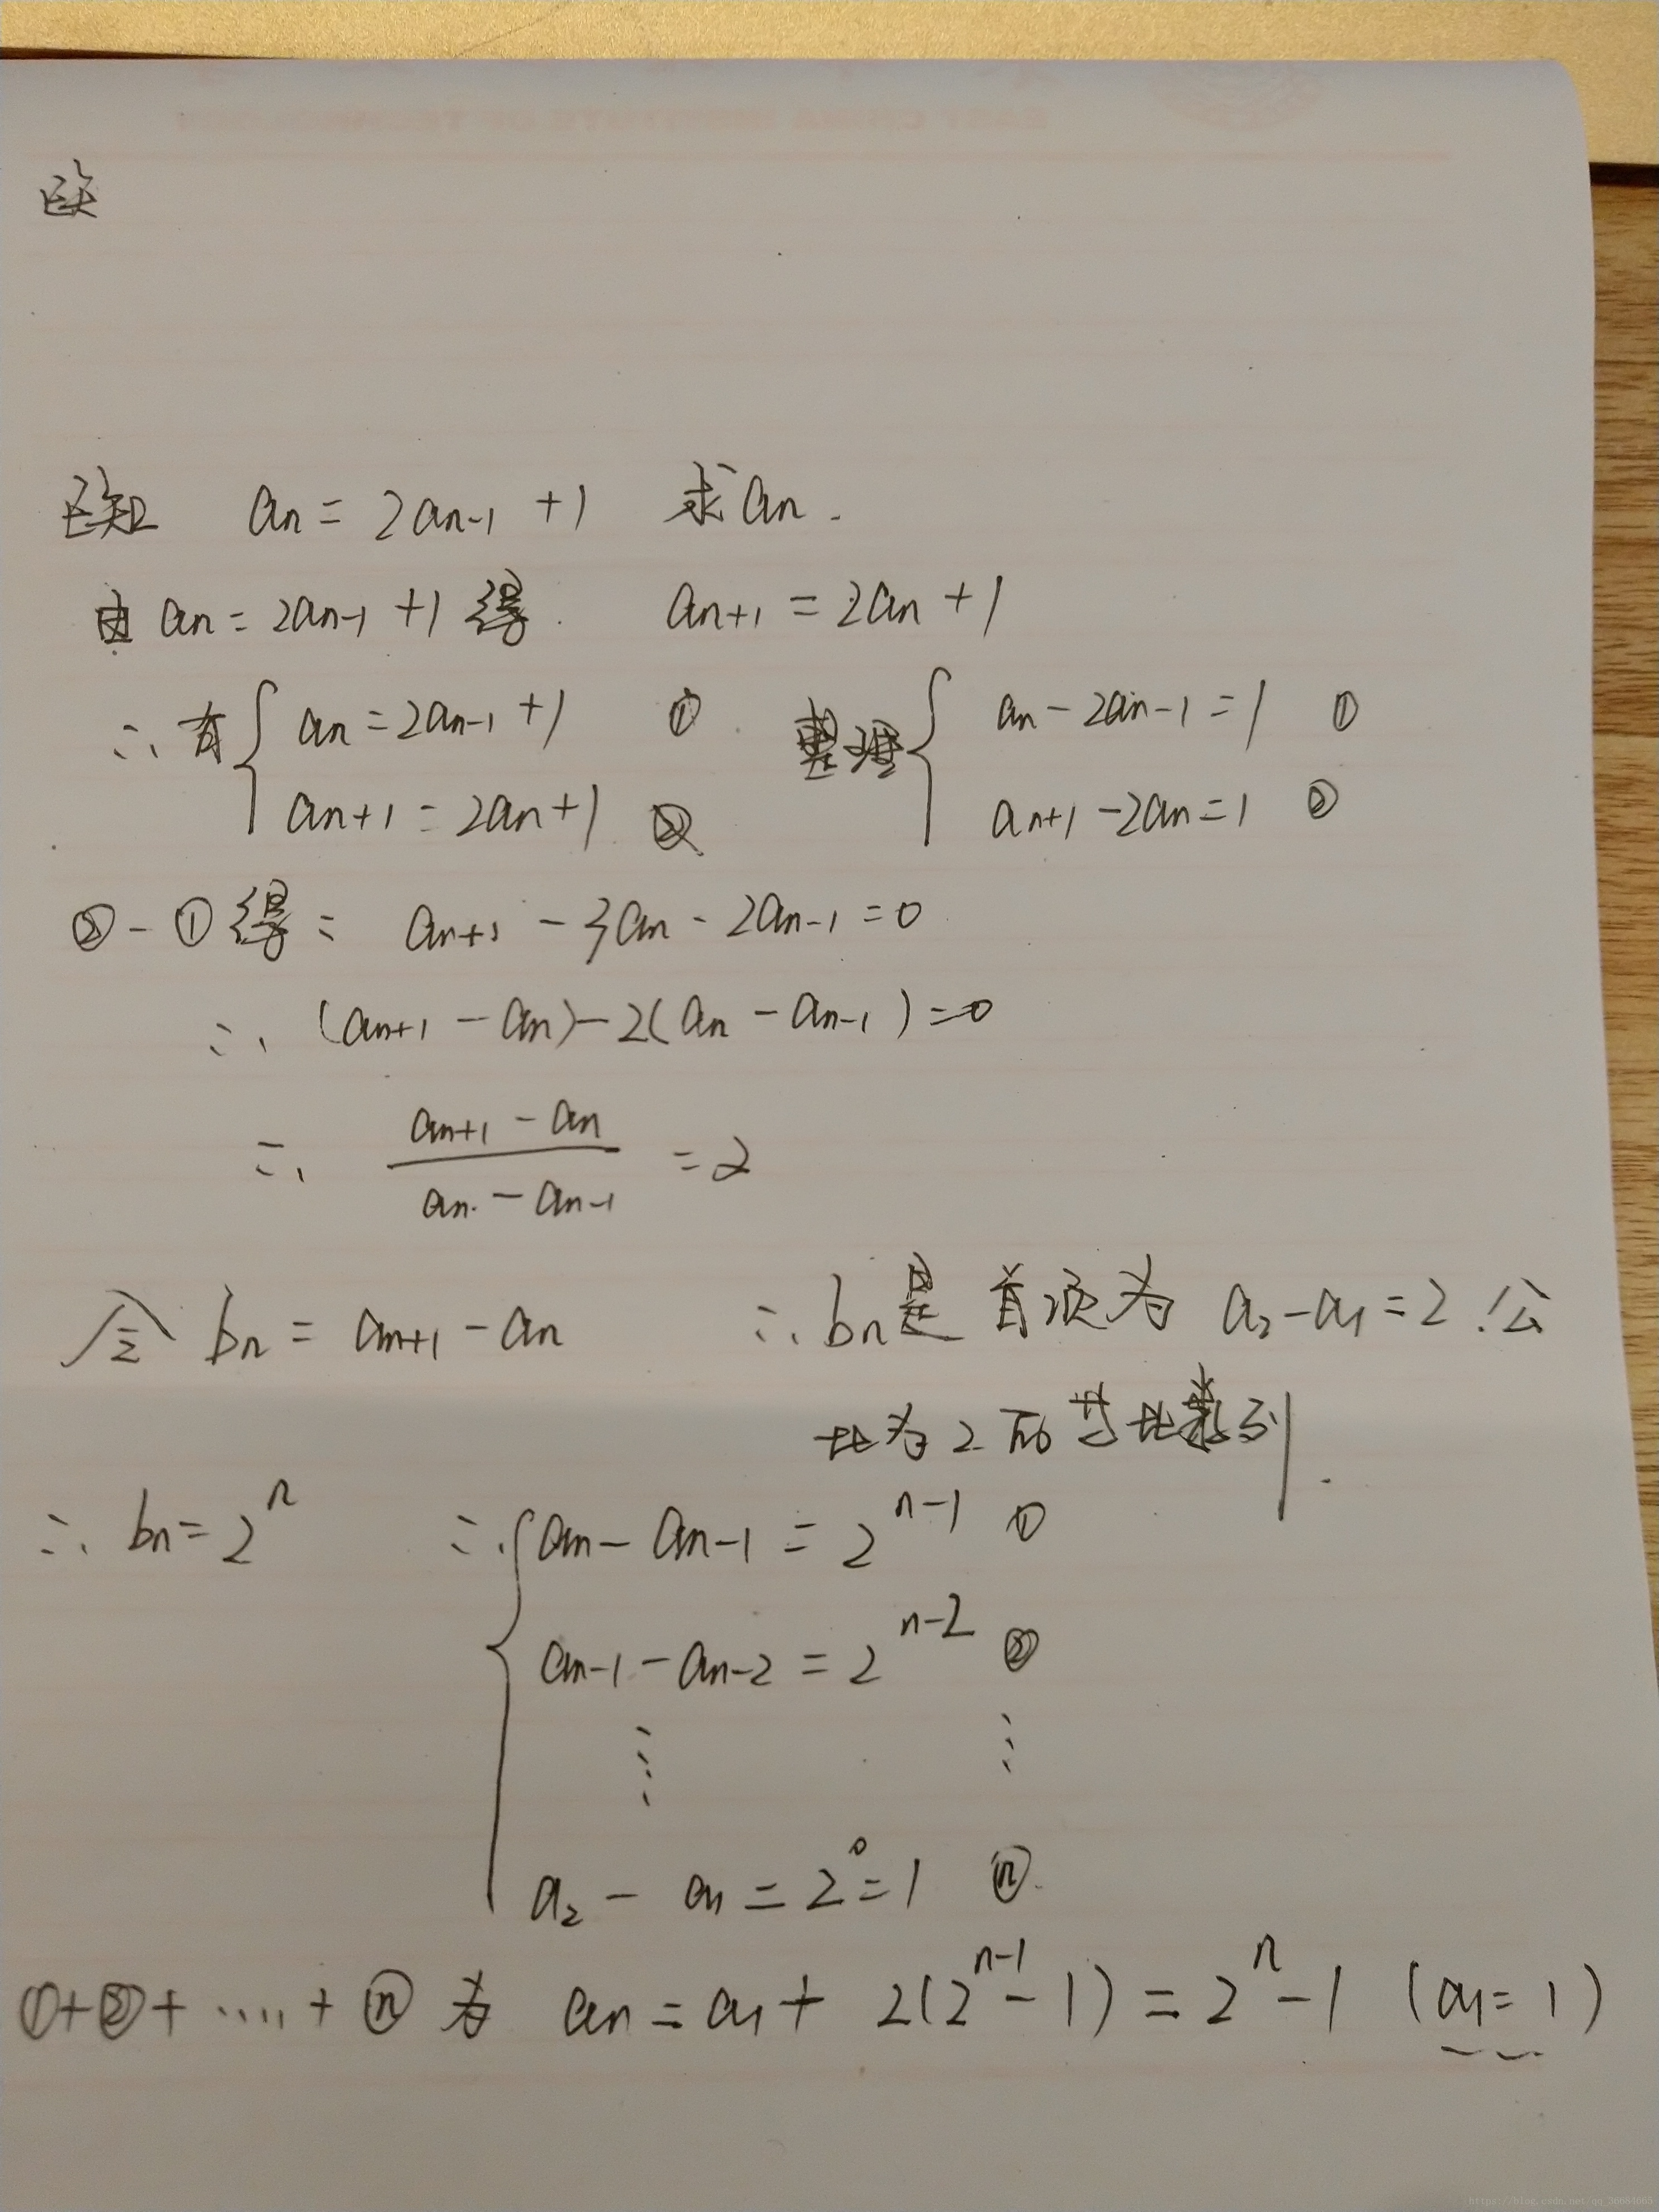 已知 an = 2an-1 + 1 求an.
由 an = 2an-1 + 1 得: an+1 = 2an + 1
∴有 { an = 2an-1 + 1 ① 整理 { an - 2an-1 = 1 ①
an+1 = 2an + 1 ② an+1 - 2an = 1 ②
② - ① 得: an+1 - 3an - 2an-1 = 0
∴ (an+1 - an) - 2(an - an-1) = 0
∴ (an+1 - an) / (an - an-1) = 2
令 bn = an+1 - an ∴bn是首项为 a2 - a1 = 2, 公
比为2的等比数列.
∴ bn = 2^n ∴ { an - an-1 = 2^(n-1) ①
an-1 - an-2 = 2^(n-2) ②
⋮ ⋮
a2 - a1 = 2^0 = 1 ⓝ.
①+②+ ..... + ⓝ 为 an = a1 + 2(2^(n-1) - 1) = 2^n - 1 (a1 = 1)